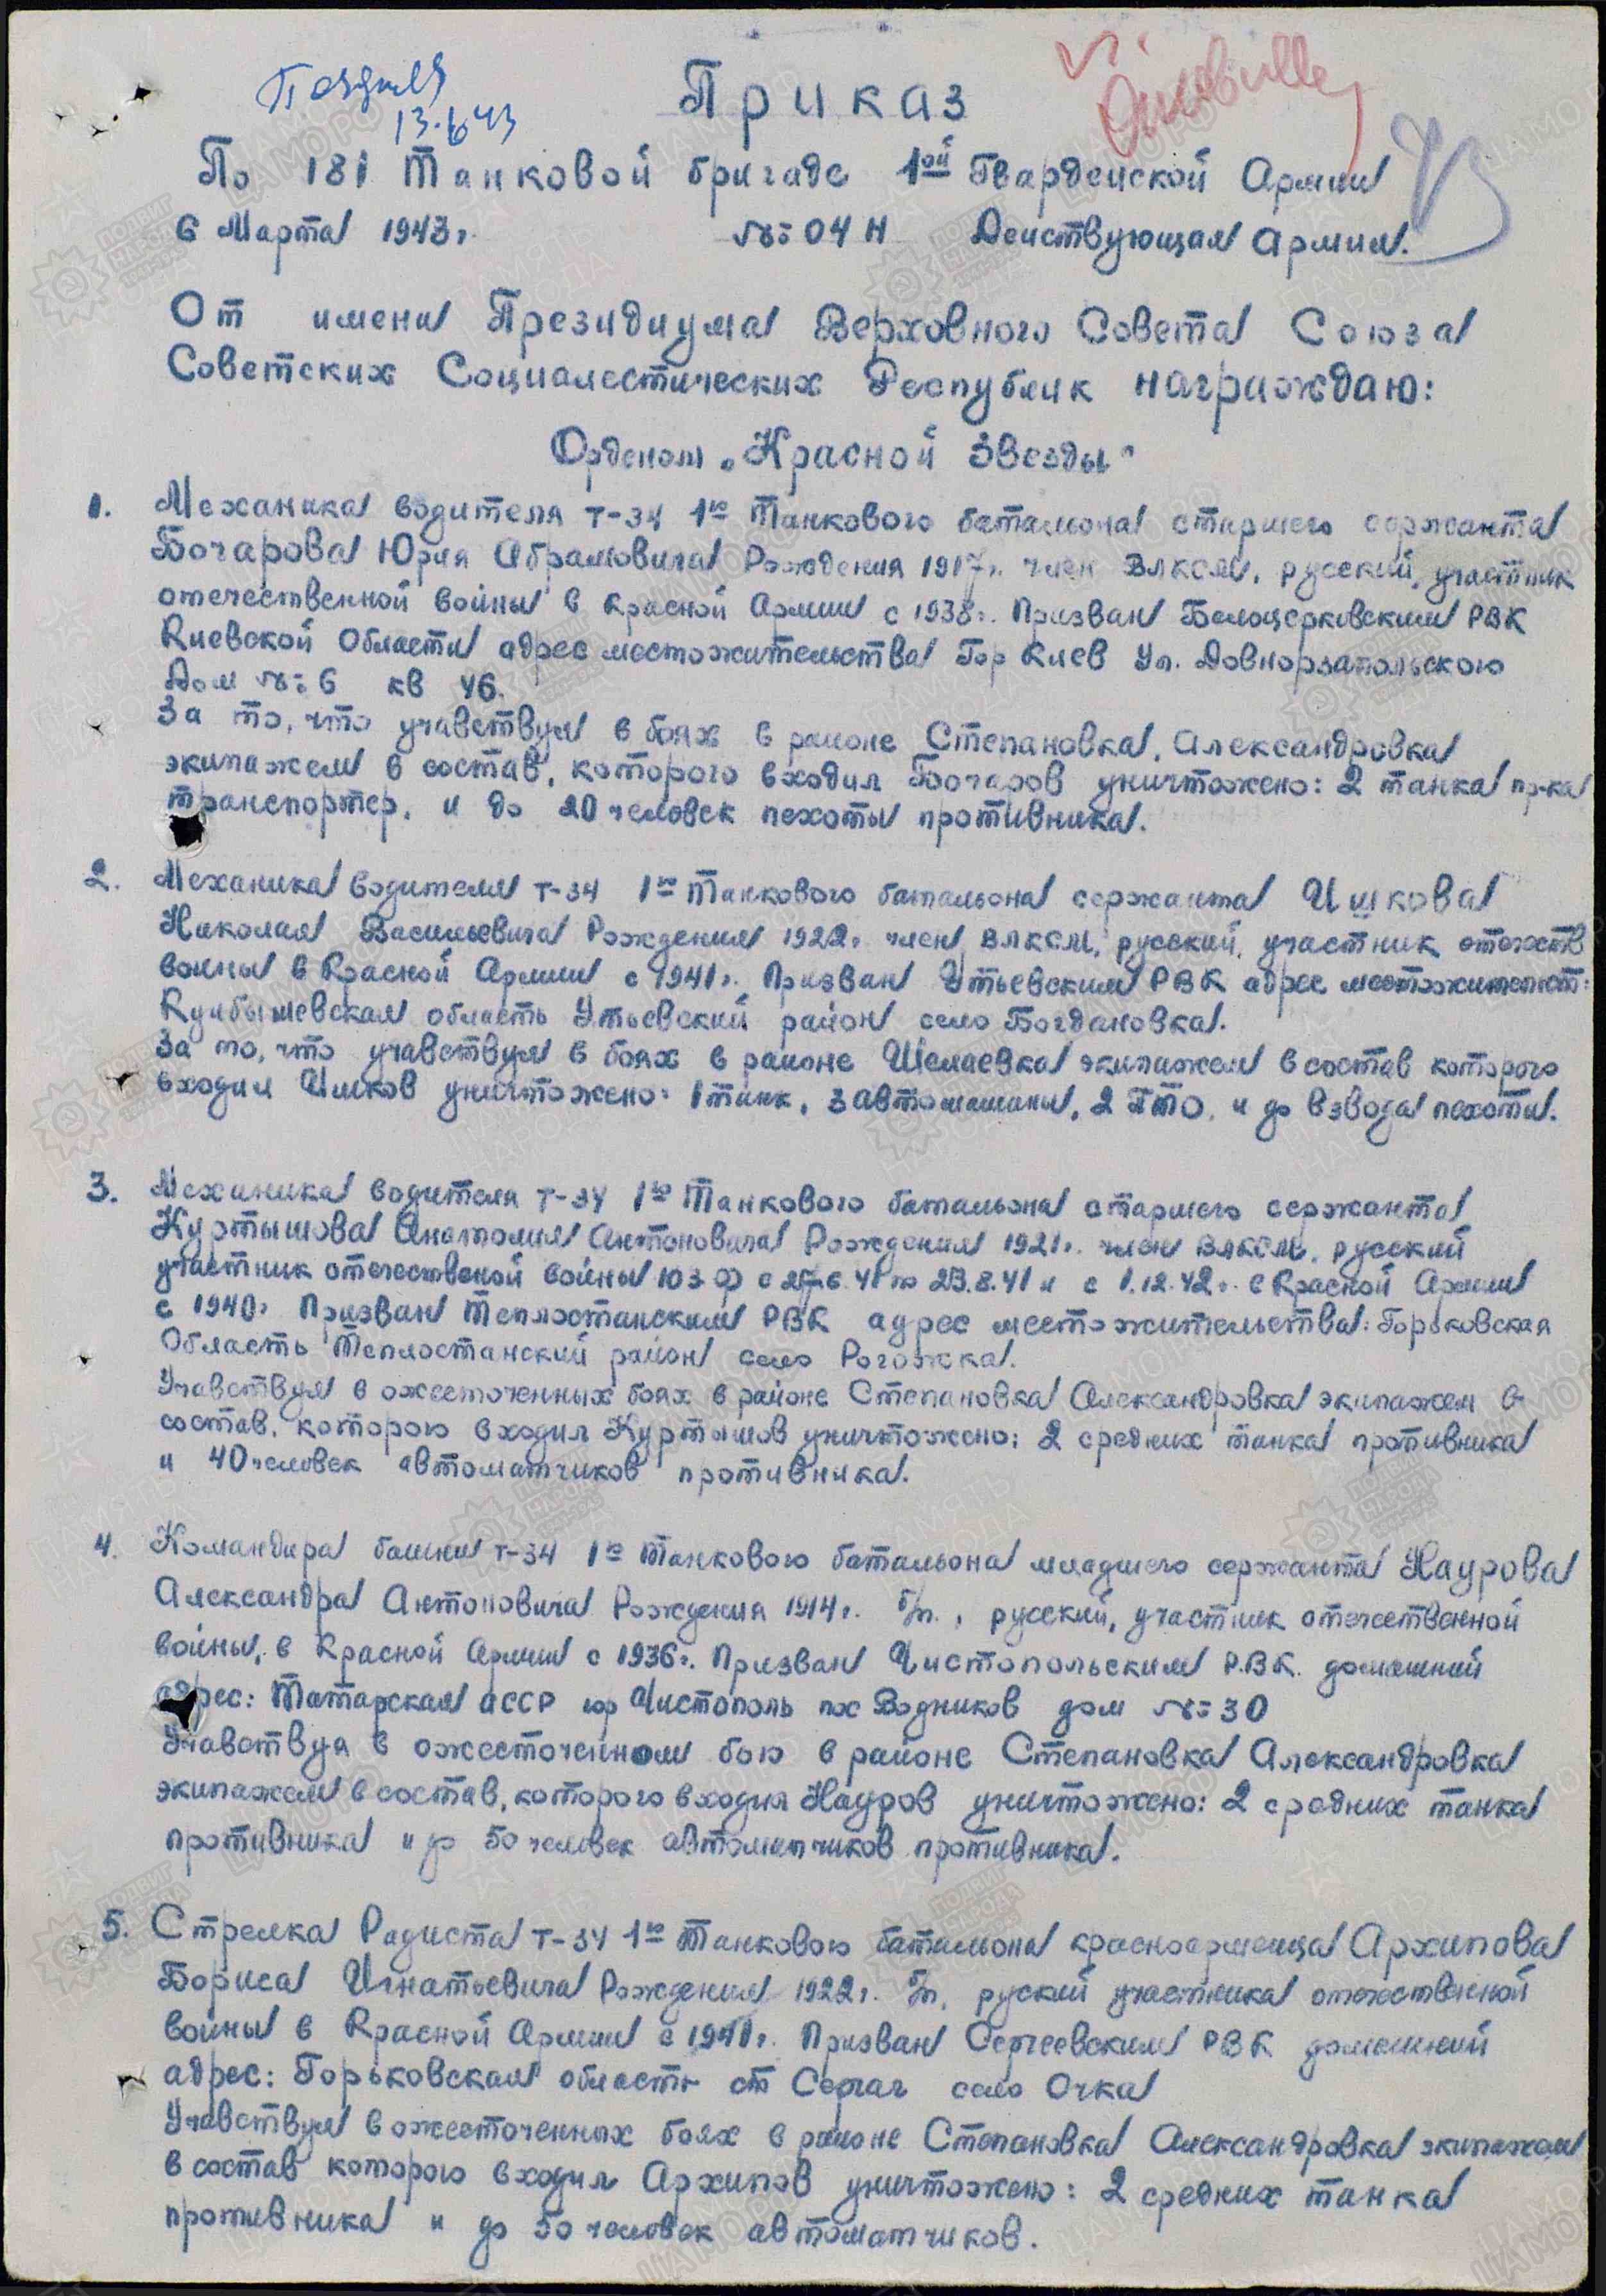 13.6.43
Приказ
По 181 Танковой бригаде 1ой Гвардейской Армии
6 Марта 1943г. №04 Н Действующая Армия.
От имени Президиума Верховного Совета Союза
Советских Социалестических Республик награждаю:
Орденом „Красной Звезды"
1. Механика водителя Т-34 1го Танкового батальона старшего сержанта
Бочарова Юрия Абрамовича Рождения 1917г. член ВЛКСМ, русский, участник
отечественной войны в Красной Армии с 1938г. Призван Белоцерковским РВК
Киевской Области адрес местожительства Гор Киев Ул. Довнорзапольского
Дом №6 кв 46.
За то, что учавствуя в боях в районе Степановка, Александровка
экипажем в состав, которого входил Бочаров уничтожено: 2 танка пр-ка
транспортер, и до 20 человек пехоты противника.
2. Механика водителя Т-34 1го Танкового батальона сержанта Ишкова
Николая Васильевича Рождения 1922г. член ВЛКСМ, русский, участник отечеств
войны в Красной Армии с 1941г. Призван Утьевским РВК адрес местожительст:
Куйбышевская область Утьевский район село Богдановка.
За то, что учавствуя в боях в районе Шелаевка экипажем в состав которого
входил Ишков уничтожено: 1 танк, 3 автомашины, 2 ПТО, и до взвода пехоты.
3. Механика водителя Т-34 1го Танкового батальона старшего сержанта
Куртышова Анатолия Антоновича Рождения 1921г. член ВЛКСМ, русский
участник отечественой войны ЮЗФ с 27.6.41 по 23.8.41 и с 1.12.42г. с Красной Армии
с 1940г. Призван Теплостанским РВК адрес местожительства: Горьковская
Область Теплостанский район село Рогожка.
Учавствуя в ожесточенных боях в районе Степановка Александровка экипажем в
состав, которого входил Куртышов уничтожено: 2 средних танка противника
и 40 человек автоматчиков противника.
4. Командира башни Т-34 1го Танкового батальона младшего сержанта Наурова
Александра Антоновича Рождения 1914г. б/п., русский, участник отечественной
войны, в Красной Армии с 1936г. Призван Чистопольским Р.В.К. домашний
адрес: Татарская АССР гор Чистополь пос Водников дом №30
Учавствуя в ожесточенном бою в районе Степановка Александровка
экипажем в состав, которого входил Науров уничтожено: 2 средних танка
противника и до 50 человек автоматчиков противника.
5. Стрелка Радиста Т-34 1го Танкового батальона красноармейца Архипова
Бориса Игнатьевича Рождения 1922г. б/п, руский участника отечественной
войны в Красной Армии с 1941г. Призван Сергеевским РВК домашний
адрес: Горьковская область ст Сергач село Очка
Учавствуя в ожесточенных боях в районе Степановка Александровка экипажем
в состав которого входил Архипов уничтожено: 2 средних танка
противника и до 50 человек автоматчиков.